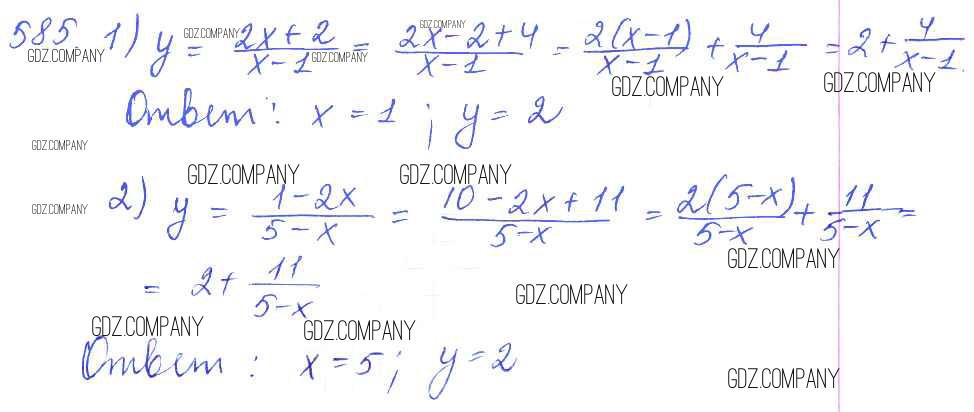 585 1) y = (2x+2)/(x-1) = (2x-2+4)/(x-1) = 2(x-1)/(x-1) + 4/(x-1) = 2 + 4/(x-1)
GDZ.COMPANY GDZ.COMPANY GDZ.COMPANY GDZ.COMPANY GDZ.COMPANY GDZ.COMPANY
Ответ: x = 1 ; y = 2
GDZ.COMPANY
GDZ.COMPANY GDZ.COMPANY
GDZ.COMPANY 2) y = (1-2x)/(5-x) = (10-2x+11)/(5-x) = 2(5-x)/(5-x) + 11/(5-x) =
GDZ.COMPANY
= 2 + 11/(5-x)
GDZ.COMPANY
GDZ.COMPANY GDZ.COMPANY
Ответ: x = 5 ; y = 2
GDZ.COMPANY